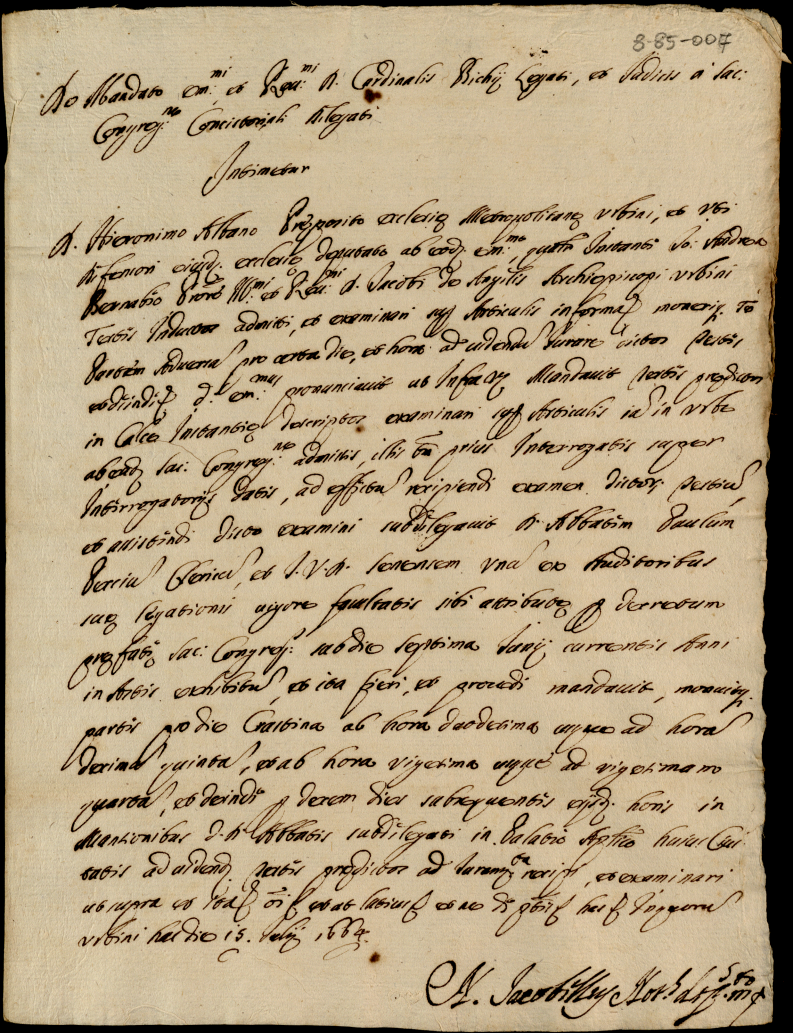 8-85-007
De Mandato Em:mi et Reu:mi D. Cardinalis Richij Legati, et Judicis a Sac:
Congreg:ne Concistoriali delegati
Intimetur
D. Hieronimo Albano Preposito ecclesie Metropolitane Urbini, et Uti
defensori eiusd. ecclesie deputato ab eod. Em:mo, Instante Jo: Andrea
Bernabeo Prore Ill:mi et Reu:mi D. Jacobi de Angelis Archiepiscopi Urbini
Testes Inductos admitti, et examinari sup Articulis in forma, moneriq.
Partem Adversa pro certa die, et hora ad videndu Jurare dictos Testes
et deinde d. Em:mus pronunciavit ut Infra Mandavit testes predictos
in Calce Instantie descriptos examinari sup Articulis ia in Urbe
ab ead. Sac: Congreg:ne admissis, illis tn prius Interrogatis super
Interrogatorijs datis, ad effectu recipiendi examen dictor. Testiu,
et assistendi dicto examini subdelegavit D. Abbatem Paulum
Clericu, et J.V.D. senensem unu ex Auditoribus
sue legationis vigore facultatis sibi attribute p decretum
prefate Sac: Congreg: sub die septima Junij currentis Anni
in Actis exhibitu, et ita fieri, et procedi mandavit, monuitq.
partes pro die Crastina ab hora duodecima usque ad hora
decima quinta, et ab hora vigesima usque ad vigesimam
quarta, et deinde p decem dies subsequentes eisd. horis in
Mansionibus d. D. Abbatis subdelegati in Palatio Aplico huius Civi
tatis ad vidend. testes predictos ad Juram:ta recipi, et examinari
ut supra et ita omni et at latius et
Urbini hac die 15. Julij 1664.
N. Jacobillus Not.